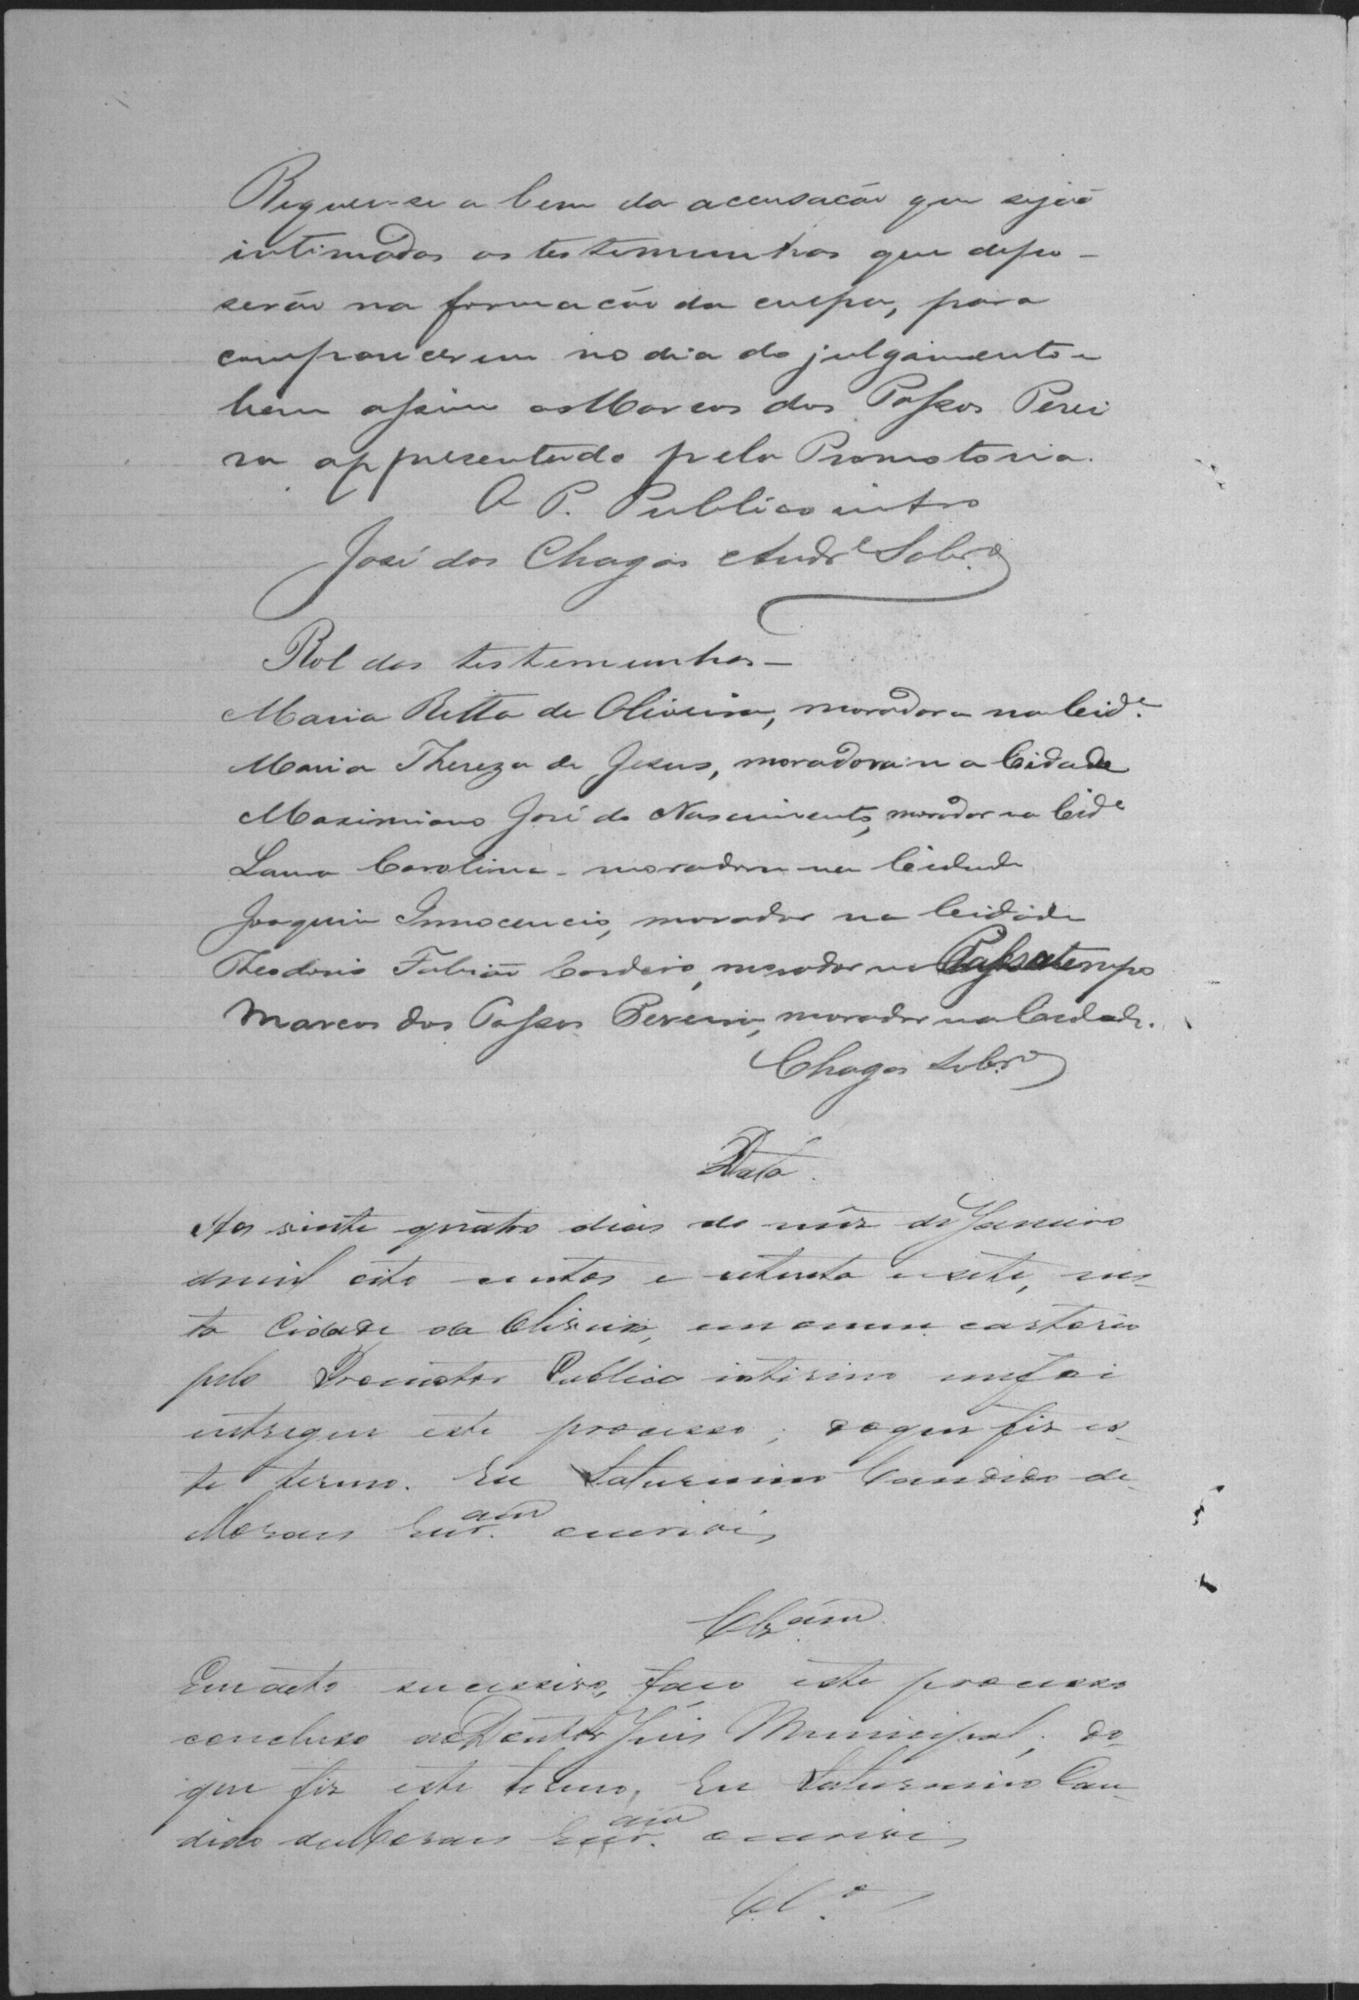 Requer-se a bem da accusacão que sejão
intimados as testemunhas que depu-
serão na formacão da culpa, para
comparecerem no dia do julgamento e
bem assim a Marcos dos Passos Perei
ra appresentado pela Promotoria.
O P. Publico intro
José das Chagas Andre Sobro
Rol das testemunhas—
Maria Ritta de Oliveira, moradora na Cide.
Maria Thereza de Jesus, moradora na Cidade
Maximiano José do Nascimento, morador na Cide
Laura Carolina - moradora na Cidade
Joaquim Innocencio, morador na Cidade
Theodorio Fabião Cordeiro, morador no Passatempo
Marcos dos Passos Pereira, morador na Cidade.
Chagas Sobro
Data.
Aos vinte quatro dias do mêz de Janeiro
de mil oito centos e oitenta e sete, nes-
ta Cidade da Oliveira, em o meu cartorio
pelo Promotor Publico interino me foi
entregue este processo; do que fiz es-
te termo. Eu Saturnino Candido de
Moraes Escram escrivi,
Clzam
Em acto successivo, faço este processo
concluso ao Doutor Juis Municipal; do
que fiz este termo, Eu Saturnino Can-
dido de Moraes Escram escrivi,
Clo.